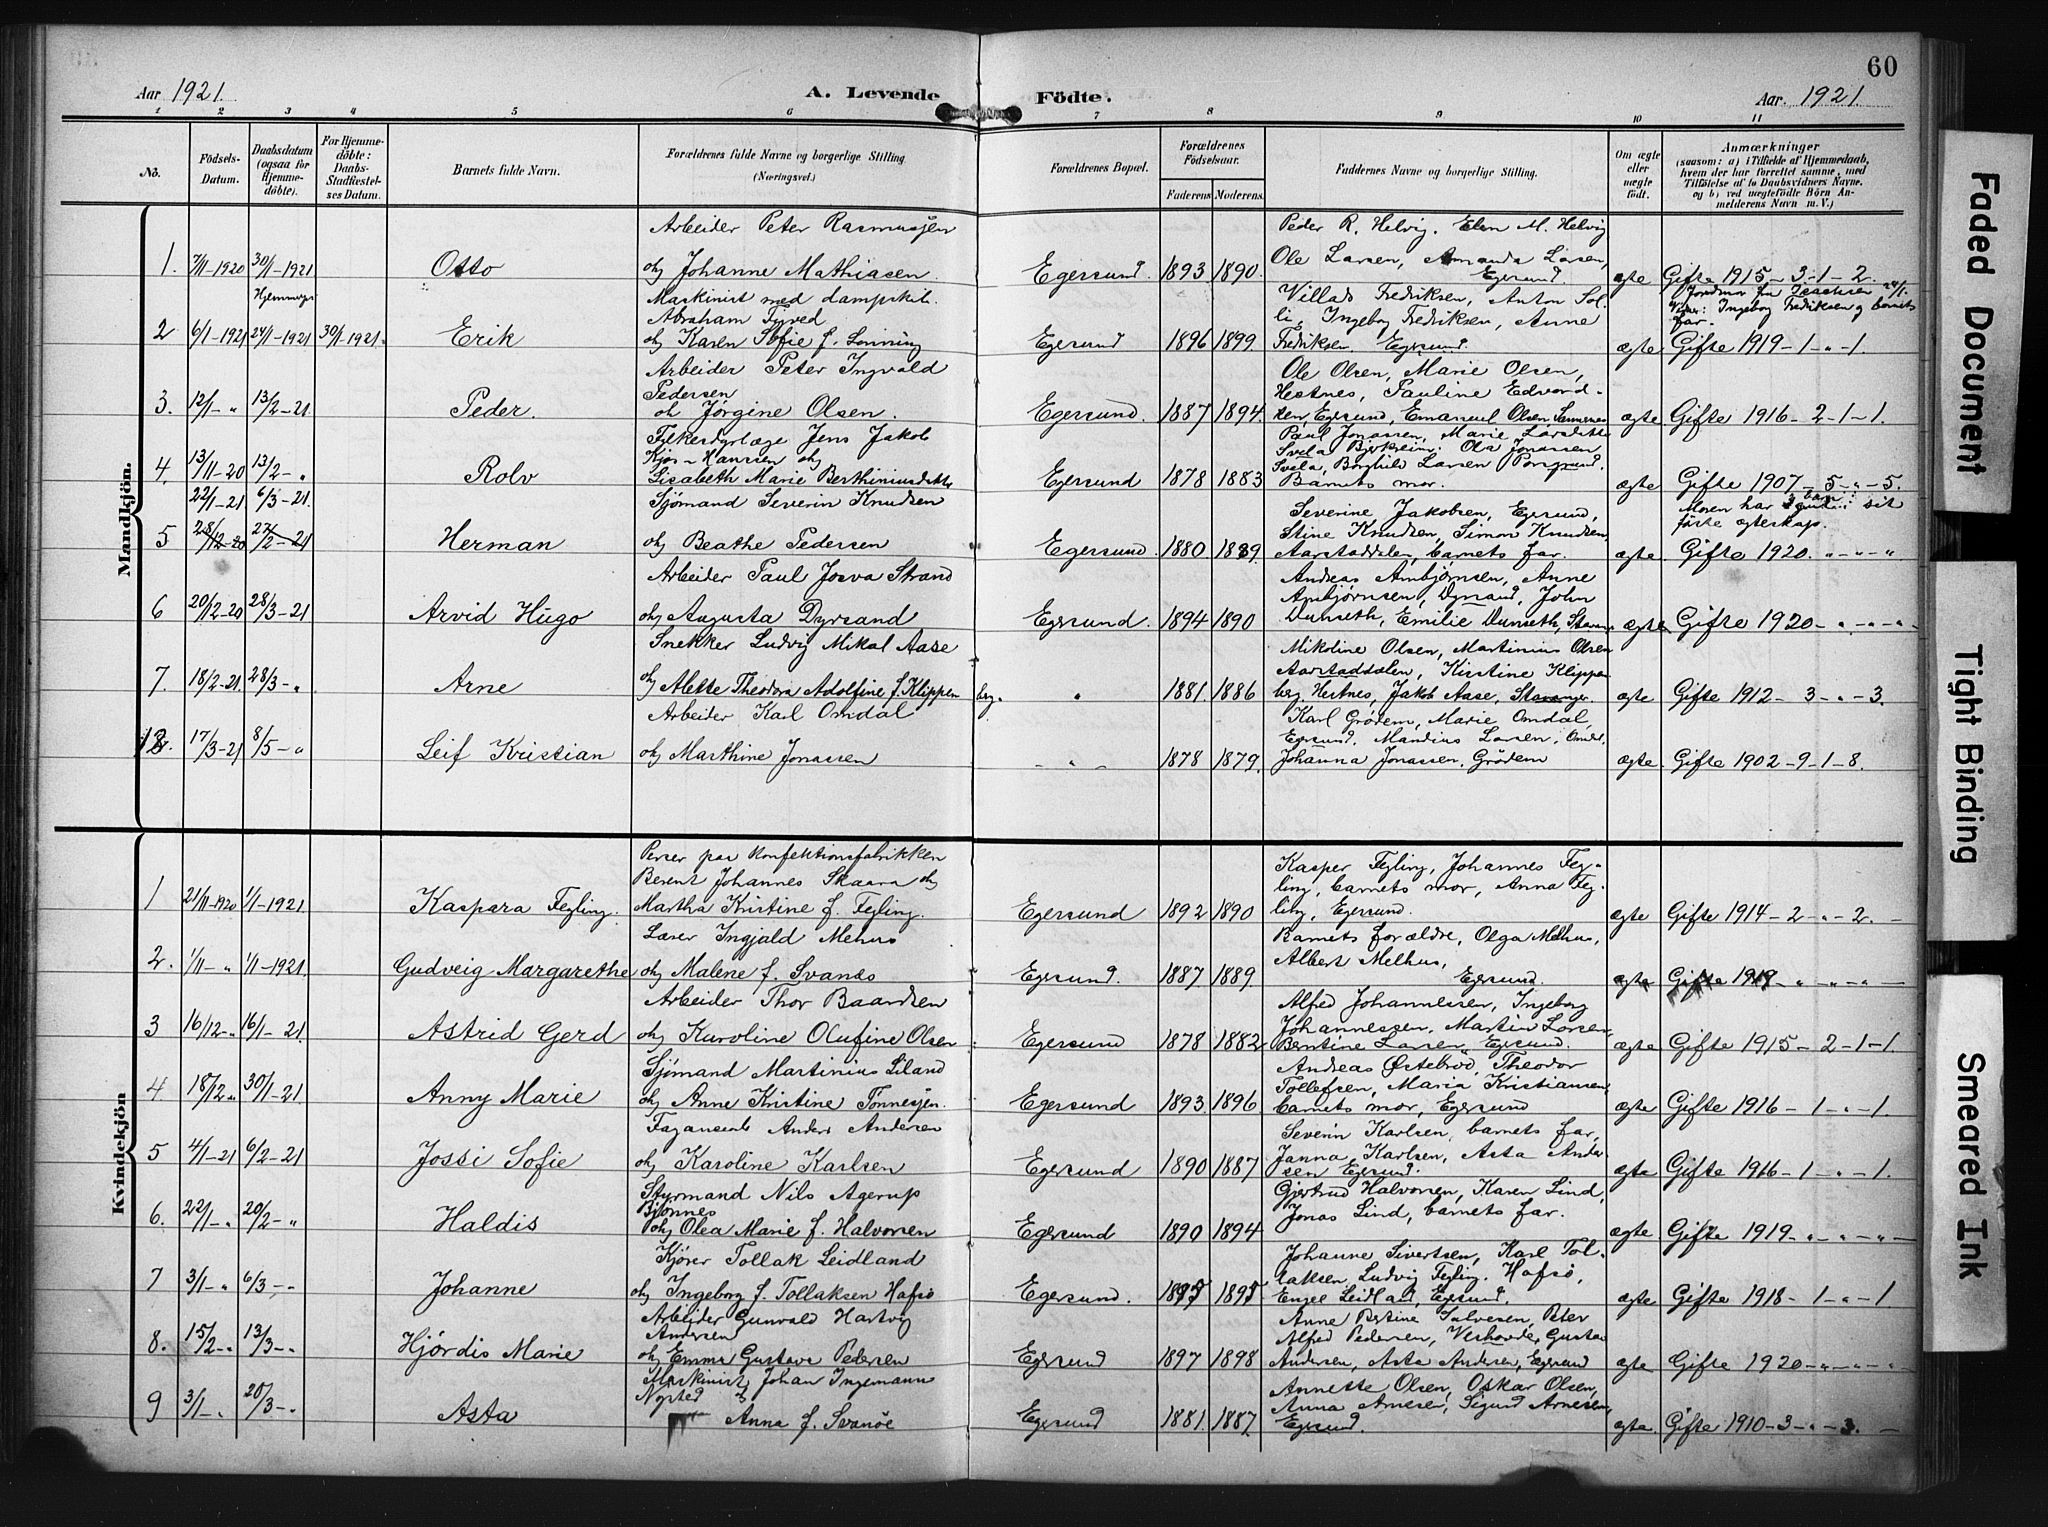 60
Aar 1921.
A. Levende Födte.
Aar. 1921.
1 2 3 4 5 6 7 8 9 10 11
No.
Födsels-Datum.
Daabsdatum (ogsaa for Hjemmedöbte).
For Hjemmedöbte: Daabs-Stadfæstelses Datum.
Barnets fulde Navn.
Forældrenes fulde Navne og borgerlige Stilling. (Næringsvei.)
Forældrenes Bopæl.
Forældrenes Födselsaar.
Faderens Moderens
Faddernes Navne og borgerlige Stilling.
Om ægte eller uægte födt.
Anmærkninger
(saasom: a) i Tilfælde af Hjemmedaab,
hvem der har forrettet samme, med
Tilföielse af to Daabsvidners Navne,
og b) ved uægtefödte Börn Anmelderens Navn m. V.)
Mandkjön.
Arbeider Peter Rasmussen Peder R. Helvig, Elen M. Helvig
1. 7/11-1920 30/1-1921 Otto og Johanne Mathiasen. Egersund. 1893 1890. Ole Larsen, Amanda Larsen, Egersund. ægte Gifte 1915-3-1-2.
Maskinist med dampskib. Villads Fredriksen, Anton
Abraham Tyved Ingeborg Fredriksen, Anne far.
2 6/1-1921 24/1-1921 30/1-1921. Erik og Karen Sofie f. Lønning Egersund 1896 1899. Fredriksen Egersund. ægte Gifte 1919-1-"-1.
Arbeider Peter Ingvald Ole Olsen, Marie Olsen,
Pedersen Hestnes, Pauline Edvard-
3. 12/1-" 13/2-21. Peder. og Jørgine Olsen. Egersund. 1887 1894. sen, Egersund, Emanuel Olsen, ægte Gifte 1916-2-1-1.
Fylkesdyrlæge Jens Jakob Paul Jonassen, Marie
Kjos-Hanssen og Svela Bjerkreim. Ola Jonassen
4. 13/11-20 13/2-" Rolv Lisabeth Marie Berthiniusdatter Egersund 1878 1883 Svela, Borghild Larsen Porsgrund. Barnets mor. ægte Gifte 1907-5-"-5.
22/1-21 6/3-21. Sjømand Severin Knudsen Severine Jakobsen, Egersund, Moren har 3 barn i sit
5 28/12-20 27/2-21 Herman og Beathe Pedersen Egersund. 1880 1889. Stine Knudsen, Simon Knudsen, Aarstaddalen, barnets far. ægte. første ægteskap. Gifte 1920. " " "
Arbeider Paul Josva Strand Andreas Ambjørnsen, Anne
6 20/12-20 28/3-21 Arvid Hugo og Augusta Dyrsand Egersund. 1894 1890 Ambjørnsen, Dyrsand, John Dunseth, Emilie Dunseth, ægte Gifte 1920-"-"-"
Snekker Ludvig Mikal Aase Mikoline Olsen, Martinius Olsen
7. 18/2-21. 28/3-" Arne og Alette Theodora Adolfine f. Klippenberg. " 1881. 1886 Aarstaddalen, Kirstine Klippenberg Hestnes, Jakob Aase, Stavanger. ægte Gifte 1912-3-"-3.
Arbeider Karl Omdal Karl Grødem, Marie Omdal,
8. 17/3-21 8/5-" Leif Kristian og Marthine Jonassen - " - 1878 1879. Egersund. Mandius Larsen, Johanna Jonassen, Grødem ægte. Gifte 1902-9-1-8.
Kvindekjön
Perser paa Konfektionsfabrikken Kasper Fegling, Johannes Feg-
Berent Johannes Skaara og ling, barnets mor, Anna Feg-
1 21/11-1920 1/1-1921 Kaspara Fegling. Martha Kristine f. Fegling. Egersund 1892 1890 ling, Egersund. ægte Gifte 1914-2-"-2.-
Lærer Ingjald Mehus Barnets forældre, Olga Melhus,
2. 1/11-" 1/1-1921. Gudveig Margarethe og Malene f. Svanes Egersund. 1887 1889. Albert Melhus, Egersund. ægte Gifte 1919-"-"-"-
Arbeider Thor Baardsen Alfred Johannessen, Ingeborg
3 16/12-" 16/1-21. Astrid Gerd og Karoline Olufine Olsen Egersund 1878 1882 Johannessen, Martin Larsen, Bentine Larsen, Egersund. ægte Gifte 1915-2-1-1.
Sjømand Martinius Liland Andreas Østebrød, Theodor
4 18/12-" 30/1-21. Anny Marie og Anne Kristine Tønnesen. Egersund 1893 1896 Tollefsen, Maria Kristiansen, barnets mor, Egersund ægte Gifte 1916-1-"-1.
Anders Andersen Severin Karlsen, barnets far,
5 4/1-21 6/2-21 Jossi Sofie og Karoline Karlsen Egersund 1890 1887 Janna Karlsen, Asta Andersen Egersund. ægte Gifte 1916-1-"-1.
Styrmand Nils Agerup Gjertrud Halvorsen, Karen Lind,
6. 22/1-" 20/2-" Haldis Bjønnes og Olea Marie f. Halvorsen Egersund 1890 1894 Jonas Lind, barnets far. ægte Gifte 1919-"-"-"-
Kjører Tollak Leidland Johanne Sivertsen, Karl Tol-
7 3/1-" 6/3-" Johanne og Ingeborg f. Tollaksen Hafsø Egersund. 1895 1895 laksen, Ludvig Fegling, Hafsø, Engel Leidland, Egersund. ægte Gifte 1918-1-"-1
Arbeider Gunvald Hartvig Anne Bertine Salvesen, Peter
8. 15/2-" 13/3-" Hjørdis Marie Andersen og Emma Gustava Pedersen Egersund 1897 1898 Alfred Pedersen, Verhovde, Gustav Andersen, Asta Andersen, Egersund ægte Gifte 1920-"-"-"
Maskinist Johan Ingemann Annette Olsen, Oskar Olsen,
9 3/1-" 20/3-" Asta Nysted og Anna f. Svanøe Egersund 1881. 1887. Anna Arnesen, Sigurd Arnesen, Egersund. ægte. Gifte 1910-3-"-3.-
Faded Document
Tight Binding
Smeared Ink